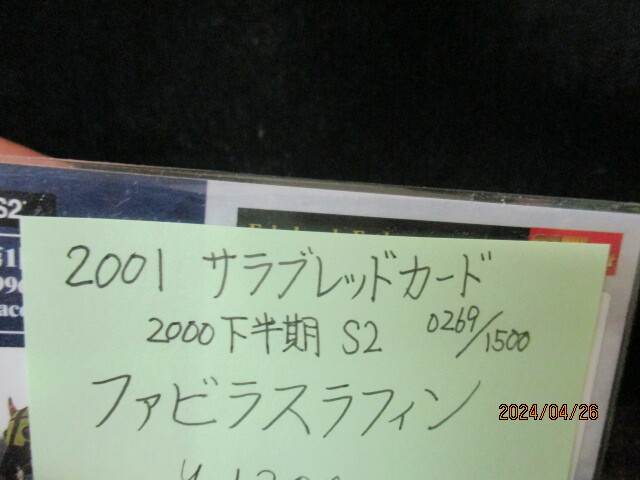 S2
2001 サラブレッドカード
2000下半期 S2 0269/1500
ファビラスラフィン
2024/04/26